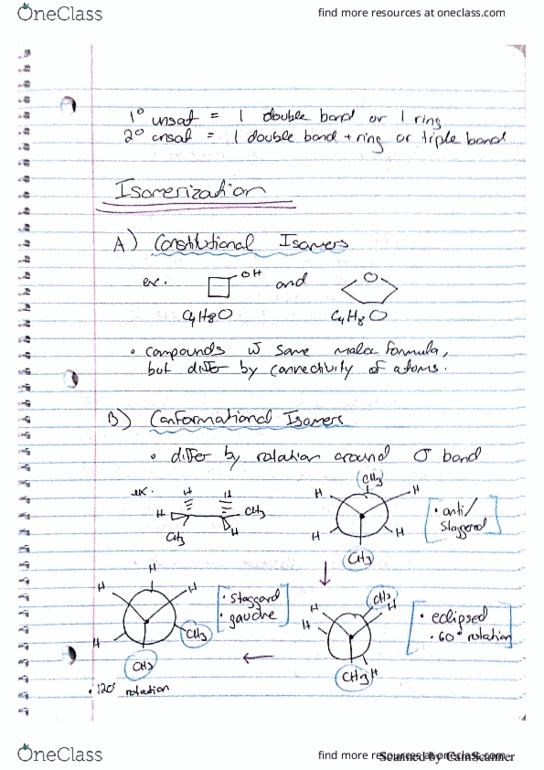 OneClass
find more resources at oneclass.com
1° unsat = 1 double bond or 1 ring
2° unsat = 1 double bond + ring or triple bond
Isomerization
A) Constitutional Isomers
ex. OH and O
C4H8O C4H8O
• compounds w same molec formula,
but differ by connectivity of atoms.
B) Conformational Isomers
• differ by rotation around σ bond
ex. H H H CH3 CH3 H
CH3 H H H H CH3
• anti/
staggered
H H H H CH3 CH3
• staggard
• gauche
CH3 H H H CH3 H
• eclipsed
• 60° rotation
• 120° rotation
OneClass
find more resources at oneclass.com
Scanned by CamScanner